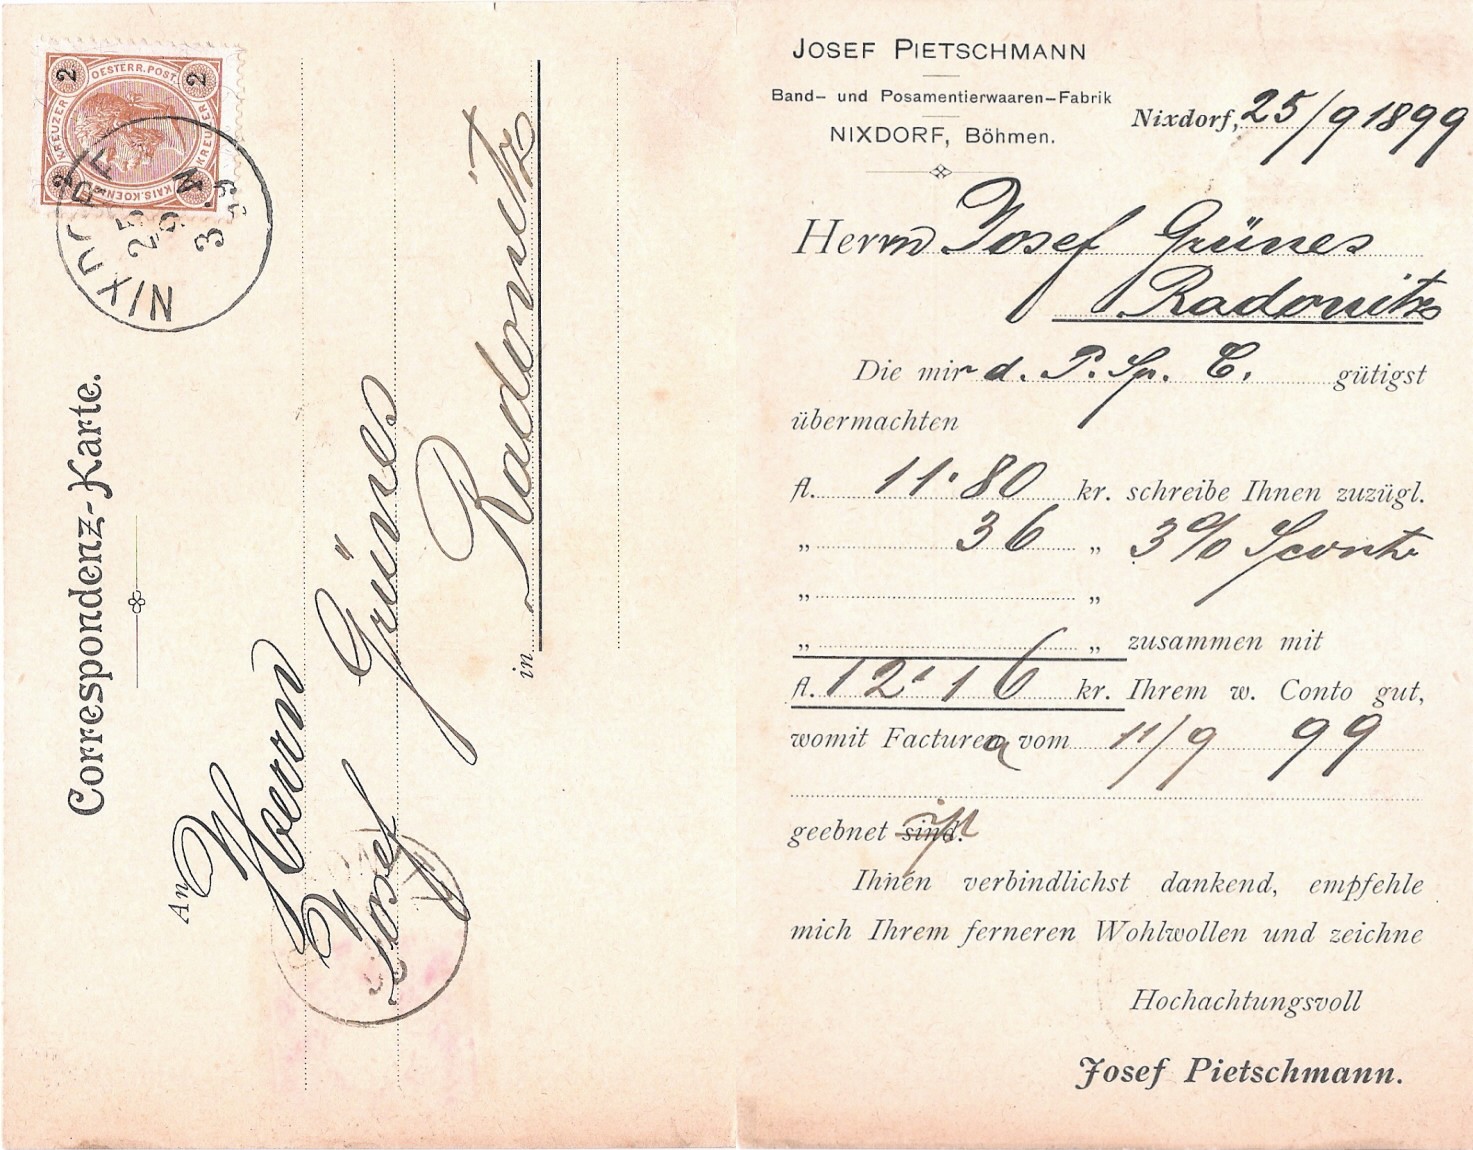 2 OESTERR. POST. 2
KREUZER KREUZER
2 KAIS. KOEN
NIXDORF
25 9
3
Correspondenz-Karte.
An Herrn
Josef Grünes
Radonitz
in
JOSEF PIETSCHMANN
Band- und Posamentierwaaren-Fabrik
NIXDORF, Böhmen.
Nixdorf, 25/9 1899
Herrn Josef Grünes
Radonitz
Die mir d. P. Sp. C. gütigst
übermachten
fl. 11·80 kr. schreibe Ihnen zuzügl.
„ 36 „ 3% Sconto
„ „
„ „ zusammen mit
fl. 12·16 kr. Ihrem w. Conto gut,
womit Facturen a vom 11/9 99
geebnet sind. ist
Ihnen verbindlichst dankend, empfehle
mich Ihrem ferneren Wohlwollen und zeichne
Hochachtungsvoll
Josef Pietschmann.